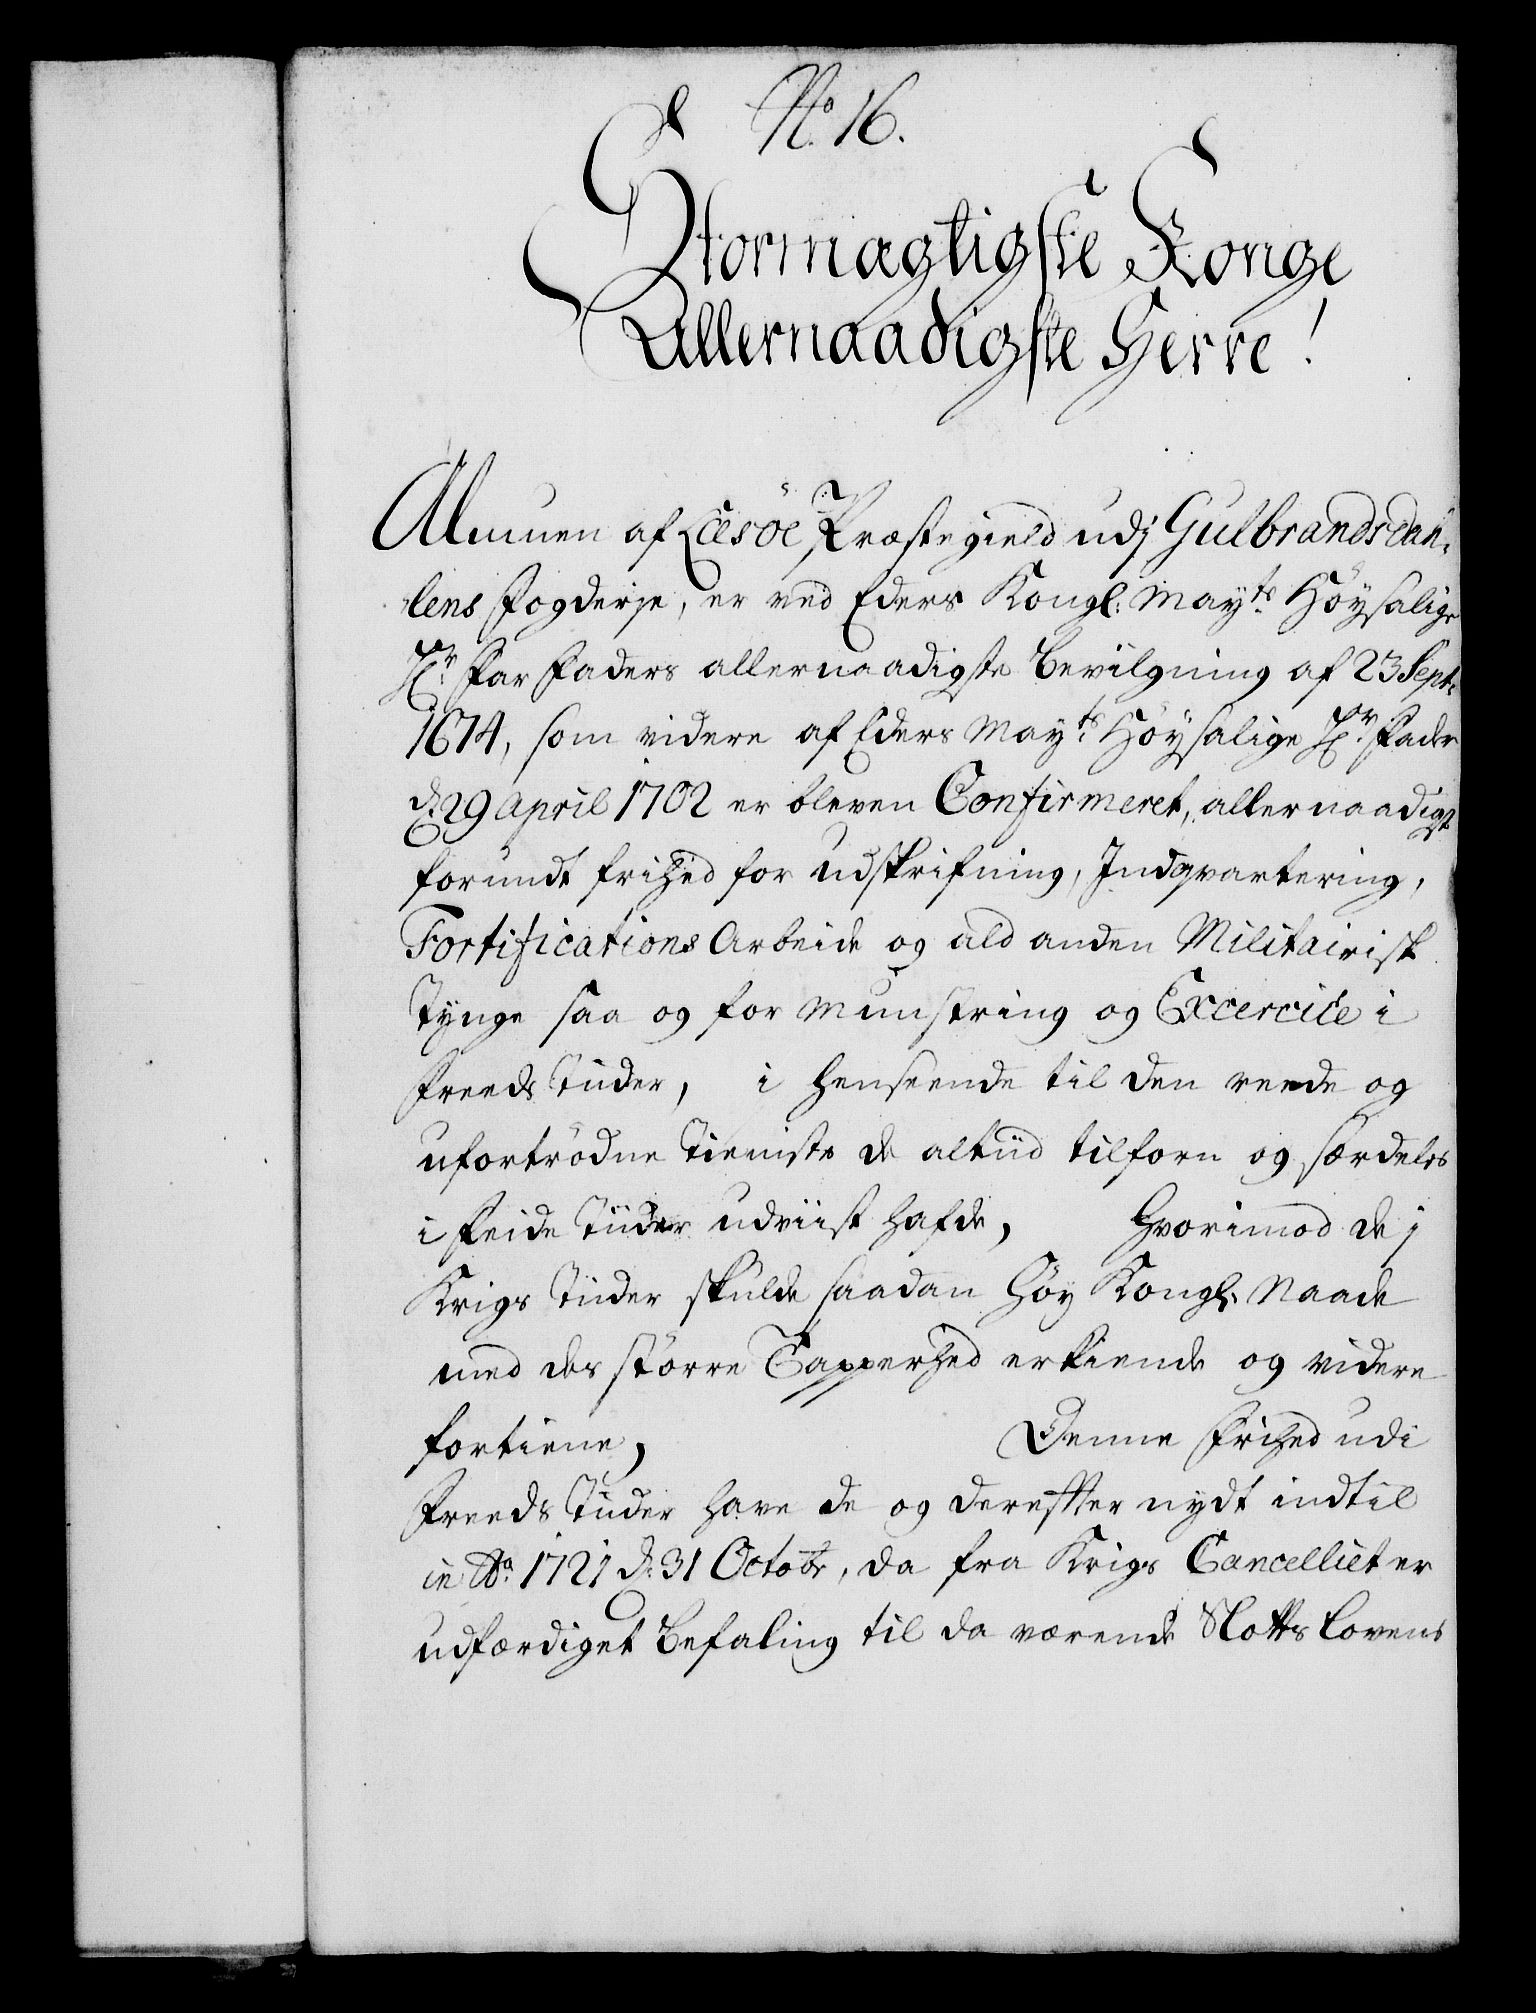 No. 16.
Stormægtigste Konge
Allernaadigste Herre!
Almuen af Lessøe Præstegield udj Gulbrandsdah-
lens fogderje, er ved Eders Kongl: Mayts Høysalige
Hr. Far Faders allernaadigste bevilgning af 23 Septr
1674, som videre af Eders Mayts Høysalige Hr. Fader
d. 29 April 1702 er bleven Confirmeret, allernaadigst
forundt frihed for udskrifning, Indqvartering,
Fortifications Arbeide og ald anden Militairisk
Tynge saa og for Munstring og Excercice i
Freds Tiider, i henseende til den reede og
ufortrødne Tieniste de altiid tilforn og særdeles
i Feide Tiider udviist hafde, Hvorimod de j
Krigs Tiider skulde saadan Høy Kongl. Naade
med des større Tapperhed erkiende og videre
fortiene, Denne Frihed udi
Freeds Tiider have de og derefter nydt indtil
in Ao. 1721 d. 31 Octobr, da fra Krigs Cancelliet er
udfærdiget befaling til da værende Slotts Lovens